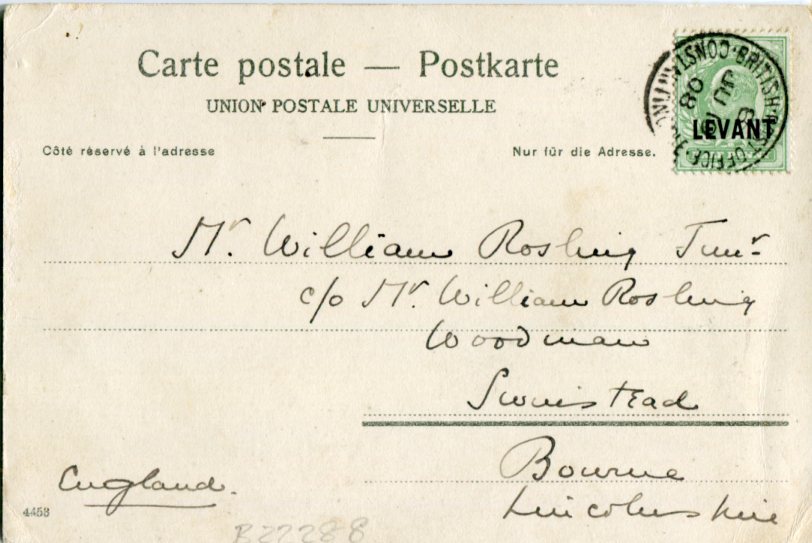 Carte postale — Postkarte
UNION POSTALE UNIVERSELLE
Côté réservé à l'adresse
Nur für die Adresse.
BRITISH POST OFFICE CONSTANTINOPLE
JU
08
LEVANT
Mr. William Rosling Junr
c/o Mr William Rosling
Woodman
Swinstead
Bourne
Lincolnshire
England.
4453
B27288